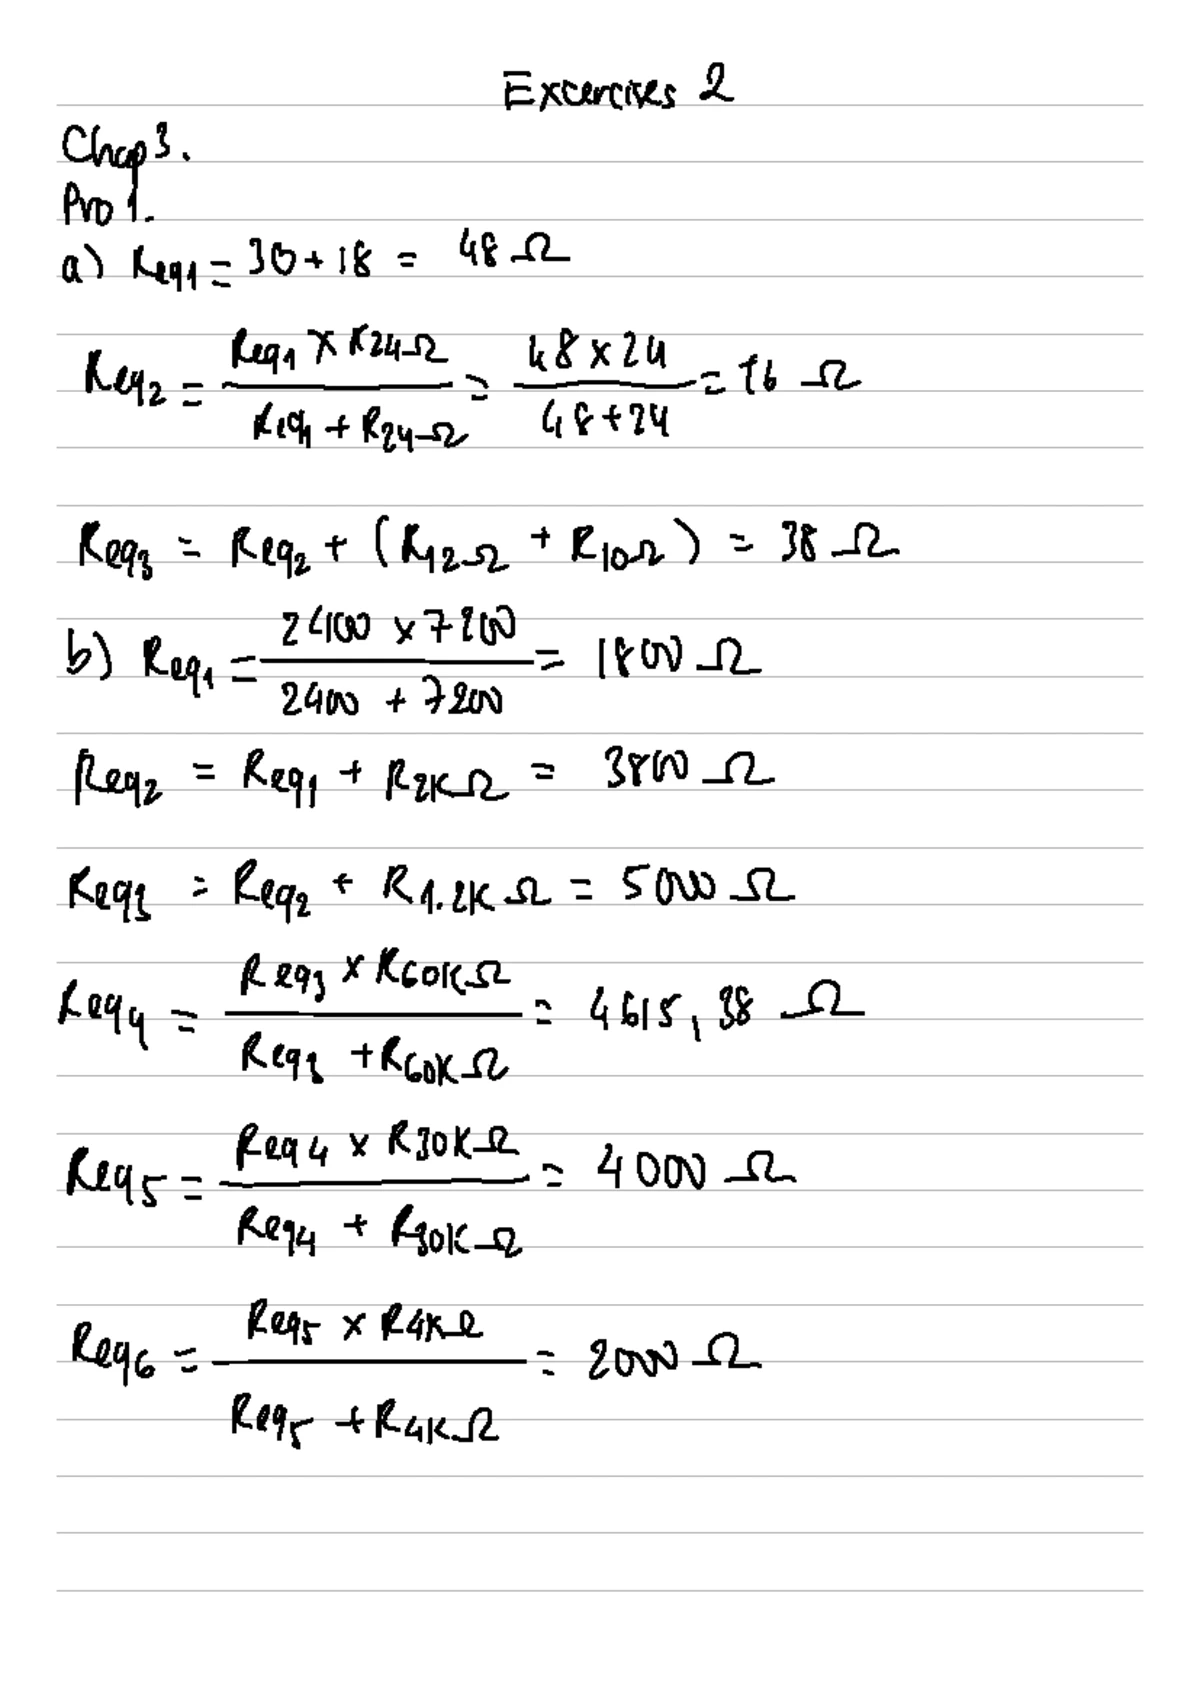 Excercises 2
Chap 3.
Pro 1.
a) Req1 = 30 + 18 = 48 Ω
Req2 = (Req1 × R24Ω) / (Req1 + R24Ω) = (48 × 24) / (48 + 24) = 16 Ω
Req3 = Req2 + (R12Ω + R10Ω) = 38 Ω
b) Req1 = (2400 × 7200) / (2400 + 7200) = 1800 Ω
Req2 = Req1 + R2KΩ = 3800 Ω
Req3 = Req2 + R1.2KΩ = 5000 Ω
Req4 = (Req3 × R60KΩ) / (Req3 + R60KΩ) = 4615,38 Ω
Req5 = (Req4 × R30KΩ) / (Req4 + R30KΩ) = 4000 Ω
Req6 = (Req5 × R4KΩ) / (Req5 + R4KΩ) = 2000 Ω